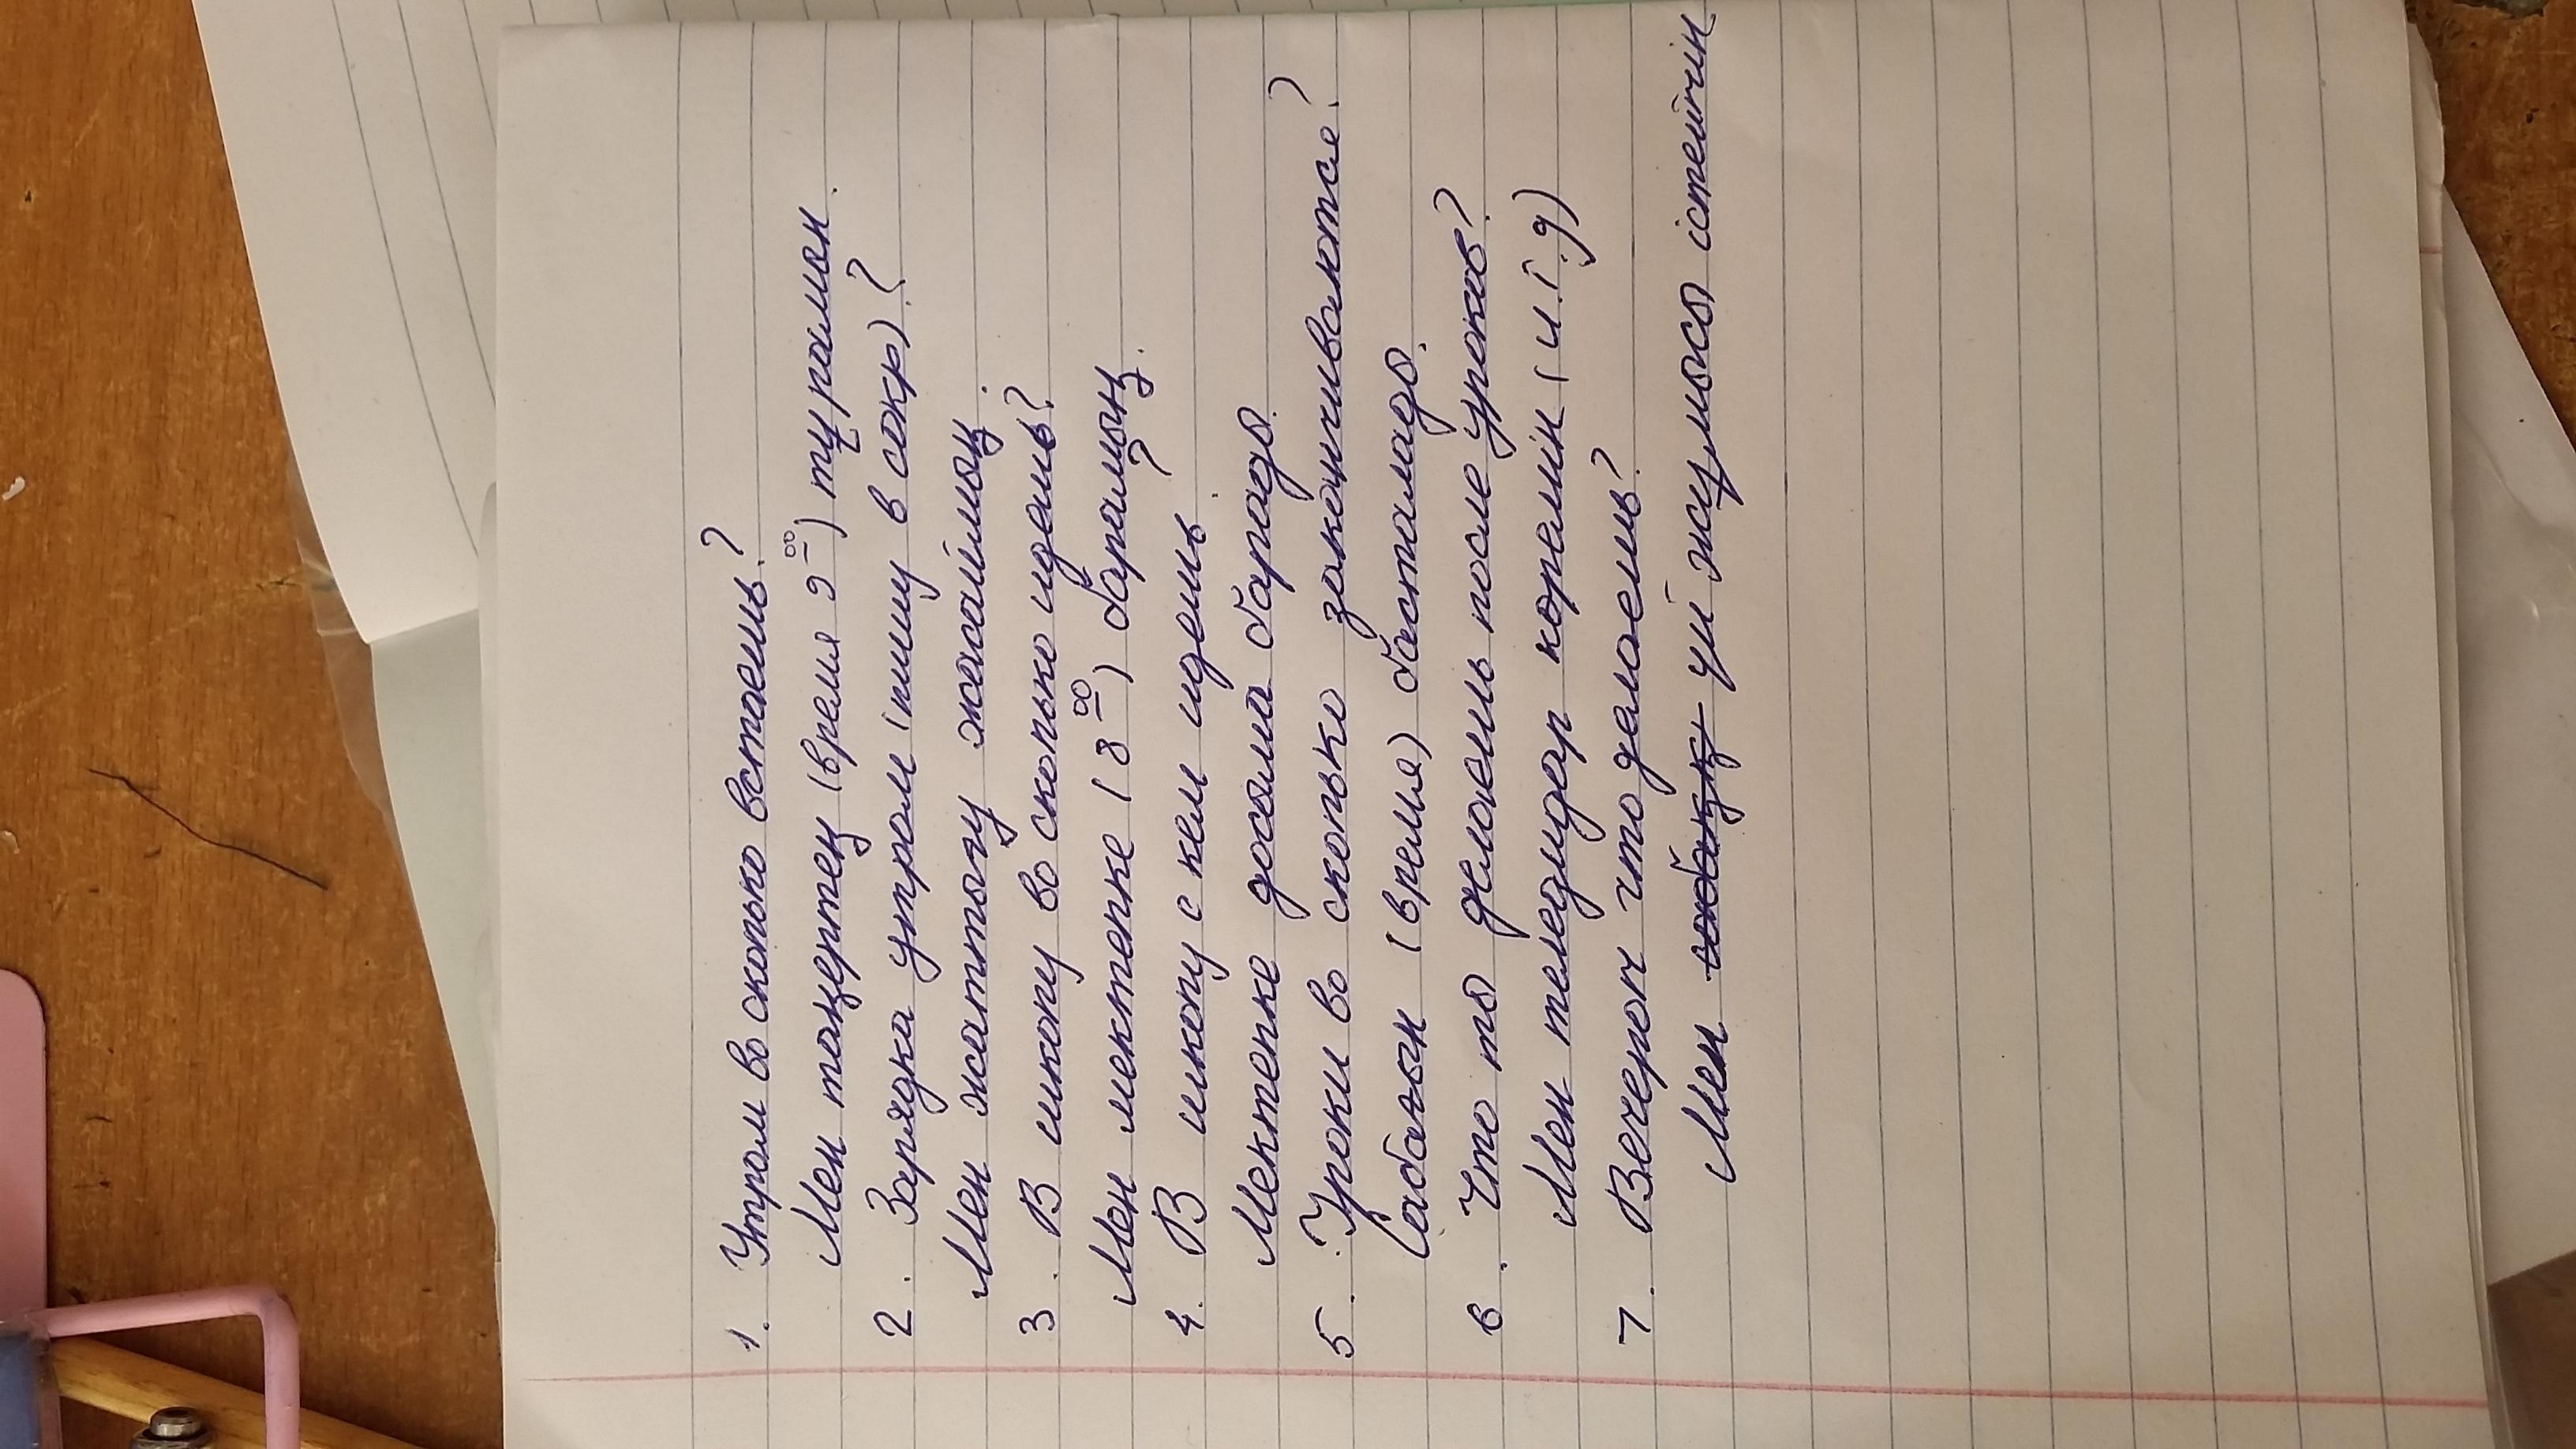 1. Утром во сколько встаешь?
Мен таңертең (время 9 00) тұрамын.
2. Зарядка утром (пишу в сокр).?
Мен жаттығу жасаймың.
3. В школу во сколько идешь?
Мен мектепке (8 00) барамың.
4. В школу с кем идешь?
Мектепке досыма барады.
5. Уроки во сколько заканчиваются?
Сабағын (время) басталады.
6. Что ты делаешь после уроков?
Мен теледидар көремін (и.т.д)
7. Вечером что делаешь?
Мен үй жұмысы істеймін